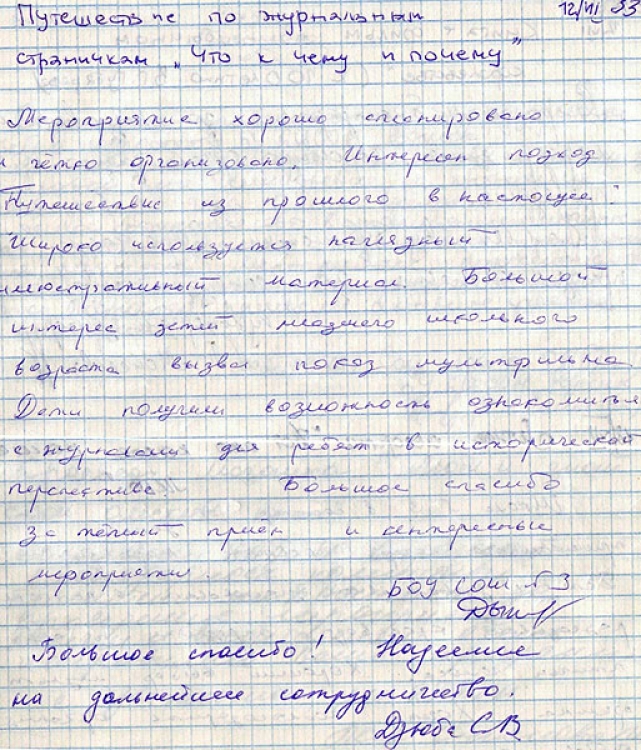 Путешествие по журнальным 12/VI 33
страничкам „Что к чему и почему"
Мероприятие хорошо спланировано
и чётко организовано. Интересен подход
Путешествие из прошлого в настоящее.
Широко используется наглядный
иллюстративный материал. Большой
интерес детей младшего школьного
возраста вызвал показ мультфильма.
Дети получили возможность ознакомиться
с журналами для ребят в исторической
перспективе. Большое спасибо
за тёплый приём и интересные
мероприятия.
БОУ СОШ 3
Большое спасибо! Надеемся
на дальнейшее сотрудничество.
Дзюба С.В